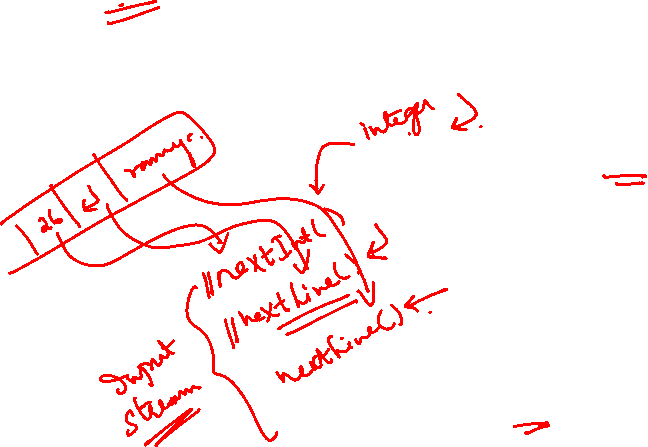 integer ↵.
| 26 | ↵ | rammy..
//nextInt()
//nextLine() ↵
nextLine()
Input
Stream